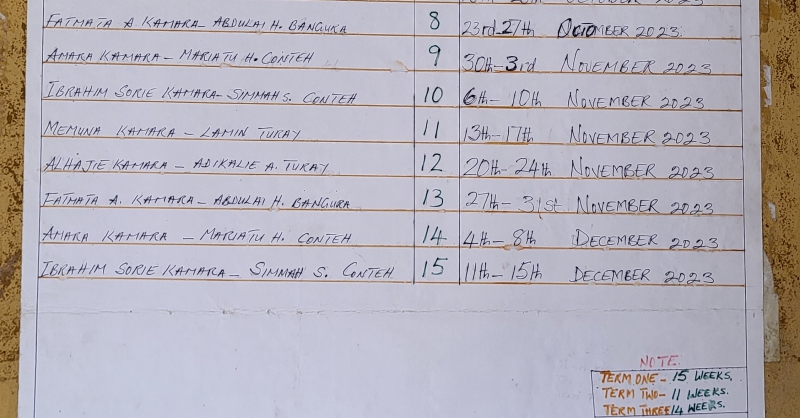 FATMATA A. KAMARA - ABDULAI H. BANGURA 8 23rd-27th OCTOMBER 2023
AMARA KAMARA - MARIATU H. CONTEH 9 30th-3rd NOVEMBER 2023
IBRAHIM SORIE KAMARA - SIMMAH S. CONTEH 10 6th-10th NOVEMBER 2023
MEMUNA KAMARA - LAMIN TURAY 11 13th-17th NOVEMBER 2023
ALHAJIE KAMARA - ADIKALIE A. TURAY 12 20th-24th NOVEMBER 2023
FATMATA A. KAMARA - ABDULAI H. BANGURA 13 27th-31st NOVEMBER 2023
AMARA KAMARA - MARIATU H. CONTEH 14 4th-8th DECEMBER 2023
IBRAHIM SORIE KAMARA - SIMMAH S. CONTEH 15 11th-15th DECEMBER 2023
NOTE
TERM ONE - 15 WEEKS.
TERM TWO - 11 WEEKS.
TERM THREE 14 WEEKS.